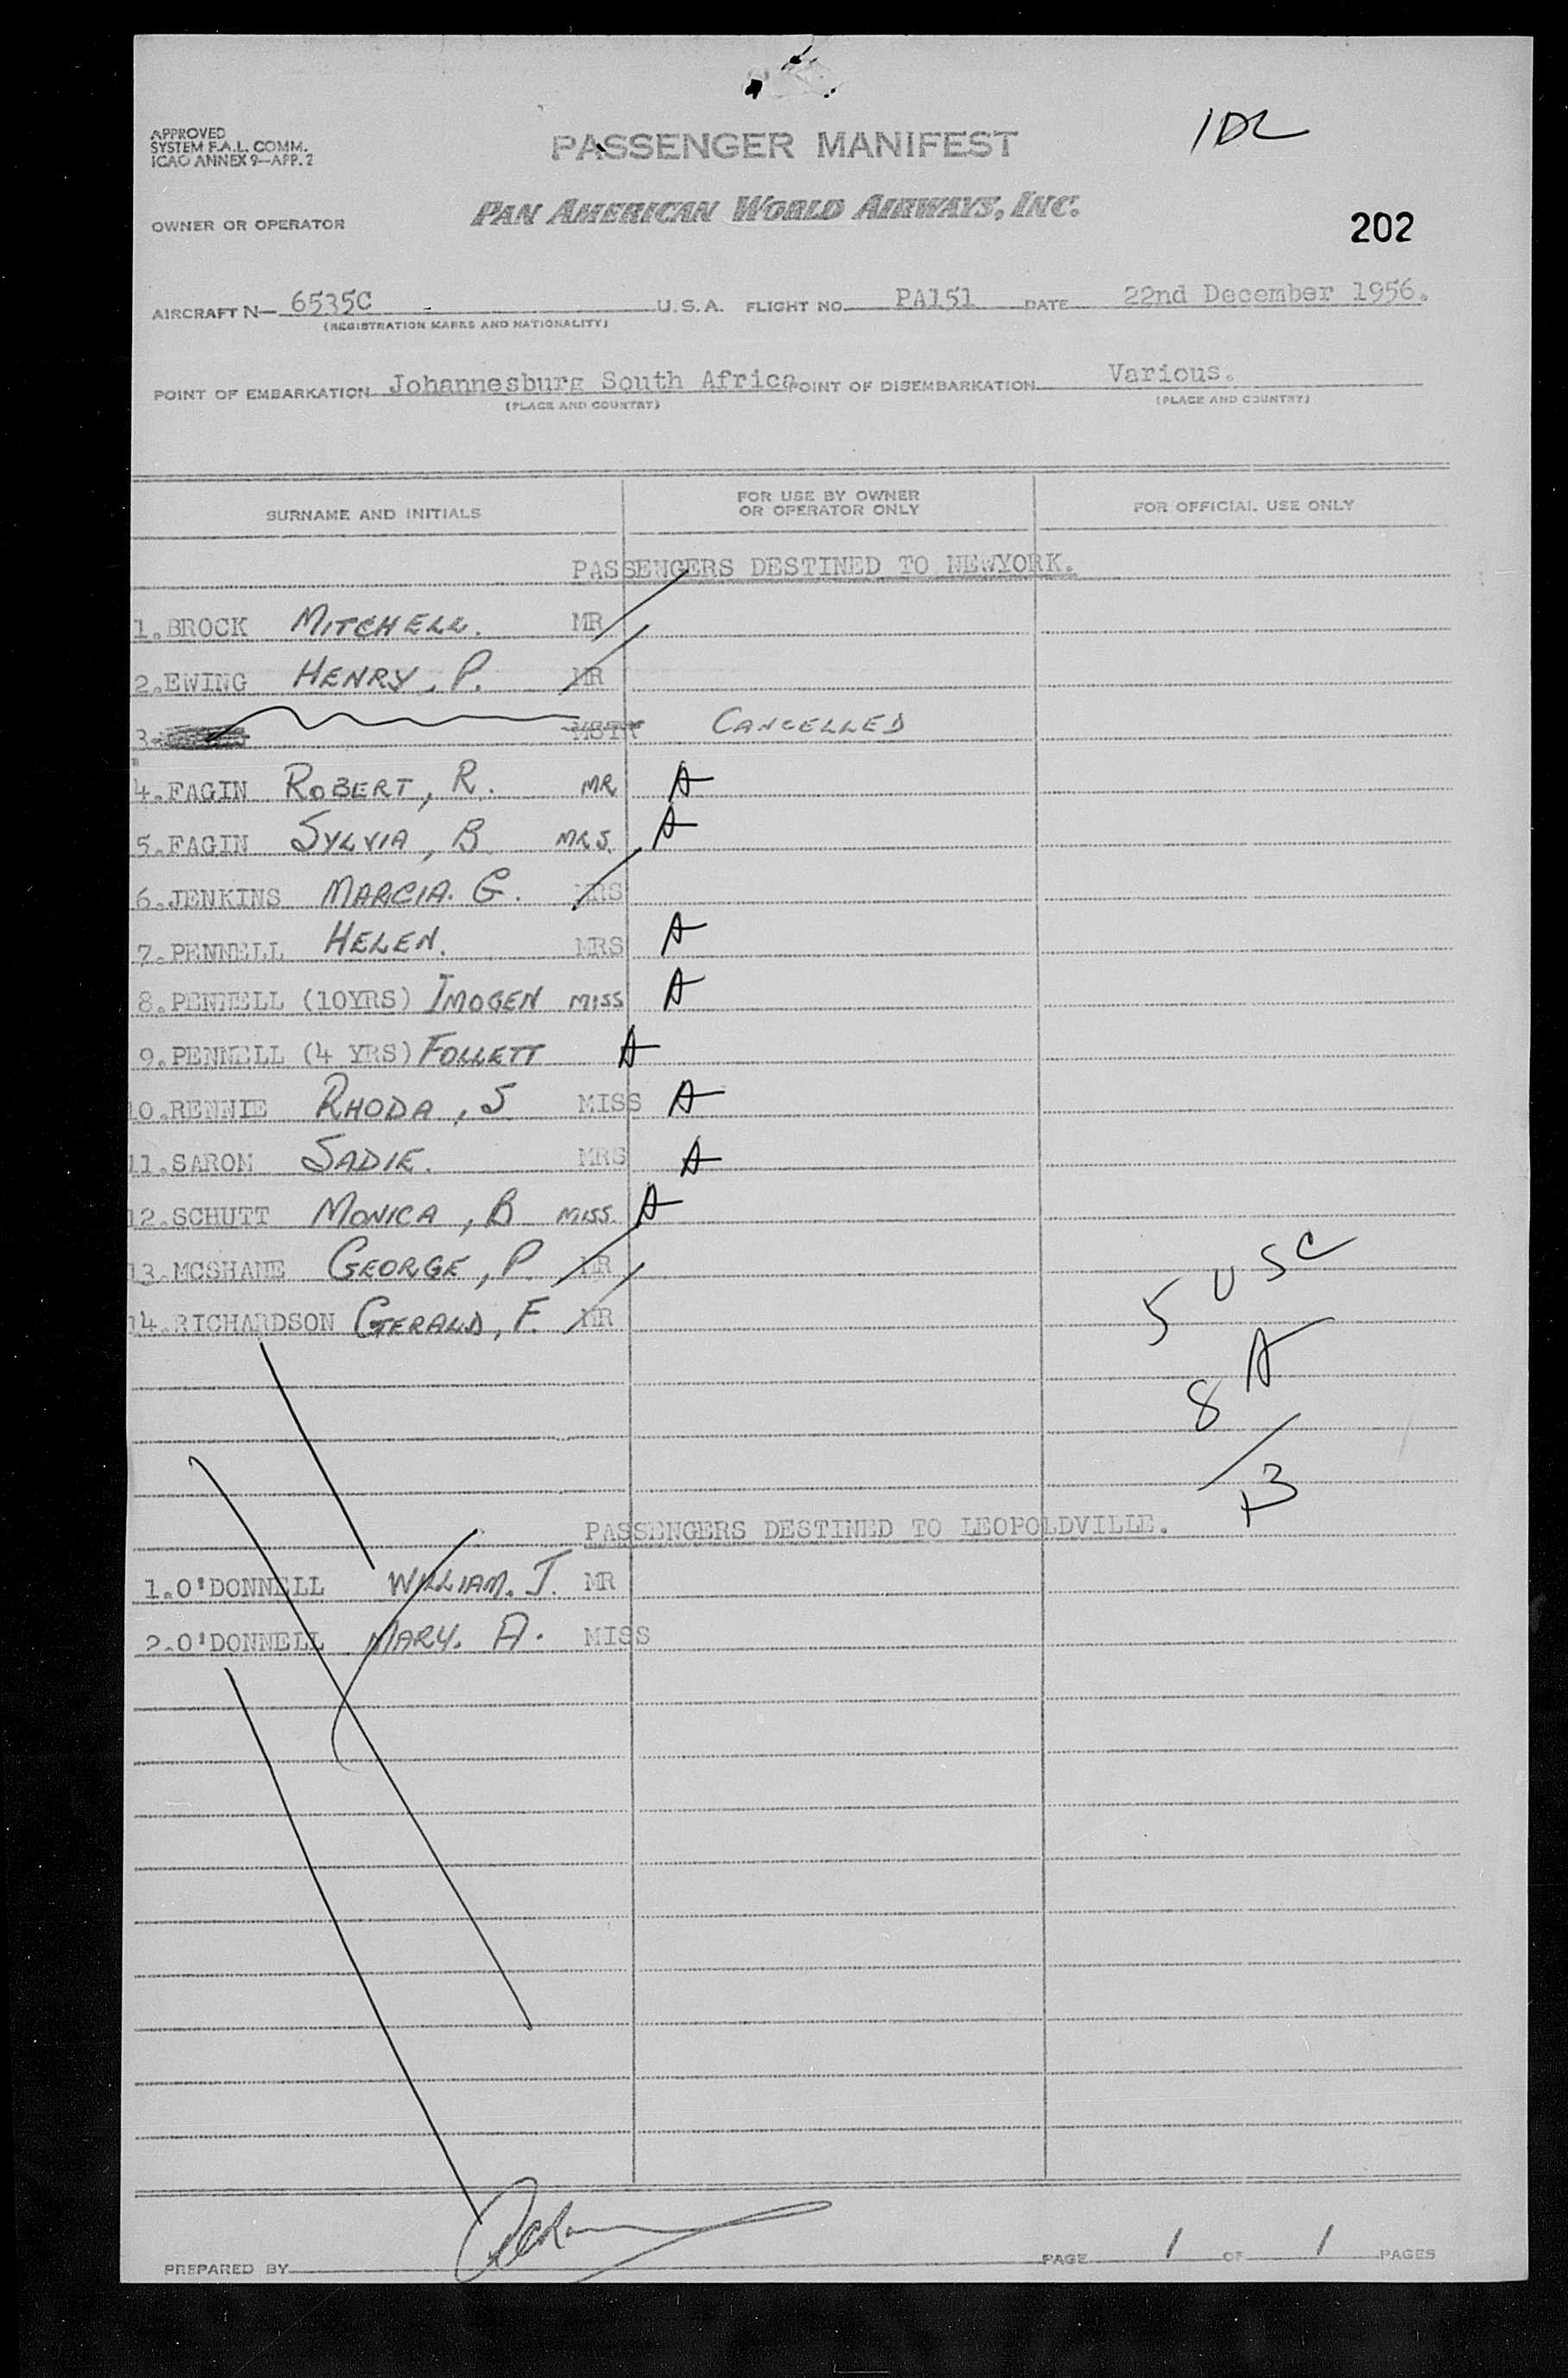 APPROVED
SYSTEM F.A.L. COMM.
ICAO ANNEX 9—APP. 2
PASSENGER MANIFEST
OWNER OR OPERATOR
PAN AMERICAN WORLD AIRWAYS, INC.
202
AIRCRAFT N— 6535C U.S.A. FLIGHT NO. PA151 DATE 22nd December 1956.
(REGISTRATION MARKS AND NATIONALITY)
POINT OF EMBARKATION Johannesburg South Africa POINT OF DISEMBARKATION Various.
(PLACE AND COUNTRY) (PLACE AND COUNTRY)
SURNAME AND INITIALS FOR USE BY OWNER OR OPERATOR ONLY FOR OFFICIAL USE ONLY
PASSENGERS DESTINED TO NEWYORK.
1.BROCK MITCHELL. MR
2.EWING HENRY, P. MR
3. MSTR CANCELLED
4.FAGIN ROBERT, R. MR A
5.FAGIN SYLVIA, B. MRS. A
6.JENKINS MARCIA. G. MRS
7.PENNELL HELEN. MRS A
8.PENNELL (10YRS) IMOGEN MISS A
9.PENNELL (4 YRS) FOLLETT A
10.RENNIE RHODA, S MISS A
11.SAROM SADIE. MRS A
12.SCHUTT MONICA, B MISS. A
13.MCSHANE GEORGE, P. MR
14.RICHARDSON GERALD, F. MR
5 USC
8 A
13
PASSENGERS DESTINED TO LEOPOLDVILLE.
1.O'DONNELL WILLIAM. J. MR
2.O'DONNELL MARY. A. MISS
PREPARED BY PAGE 1 OF 1 PAGES